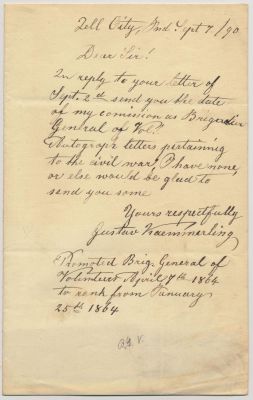 Tell City, Ind. Sept 7/90
Dear Sir!
In reply to your letter of
Sept. 2d send you the date
of my comission as Brigadier
General of Vol.s
Autograpr letters pertaining
to the civil war, I have none,
or else would be glad to
send you some
Yours respectfully
Gustav Kaemmerling
Promoted Brig. General of
Volunteers April 7th 1864
to renk from January
25th 1864